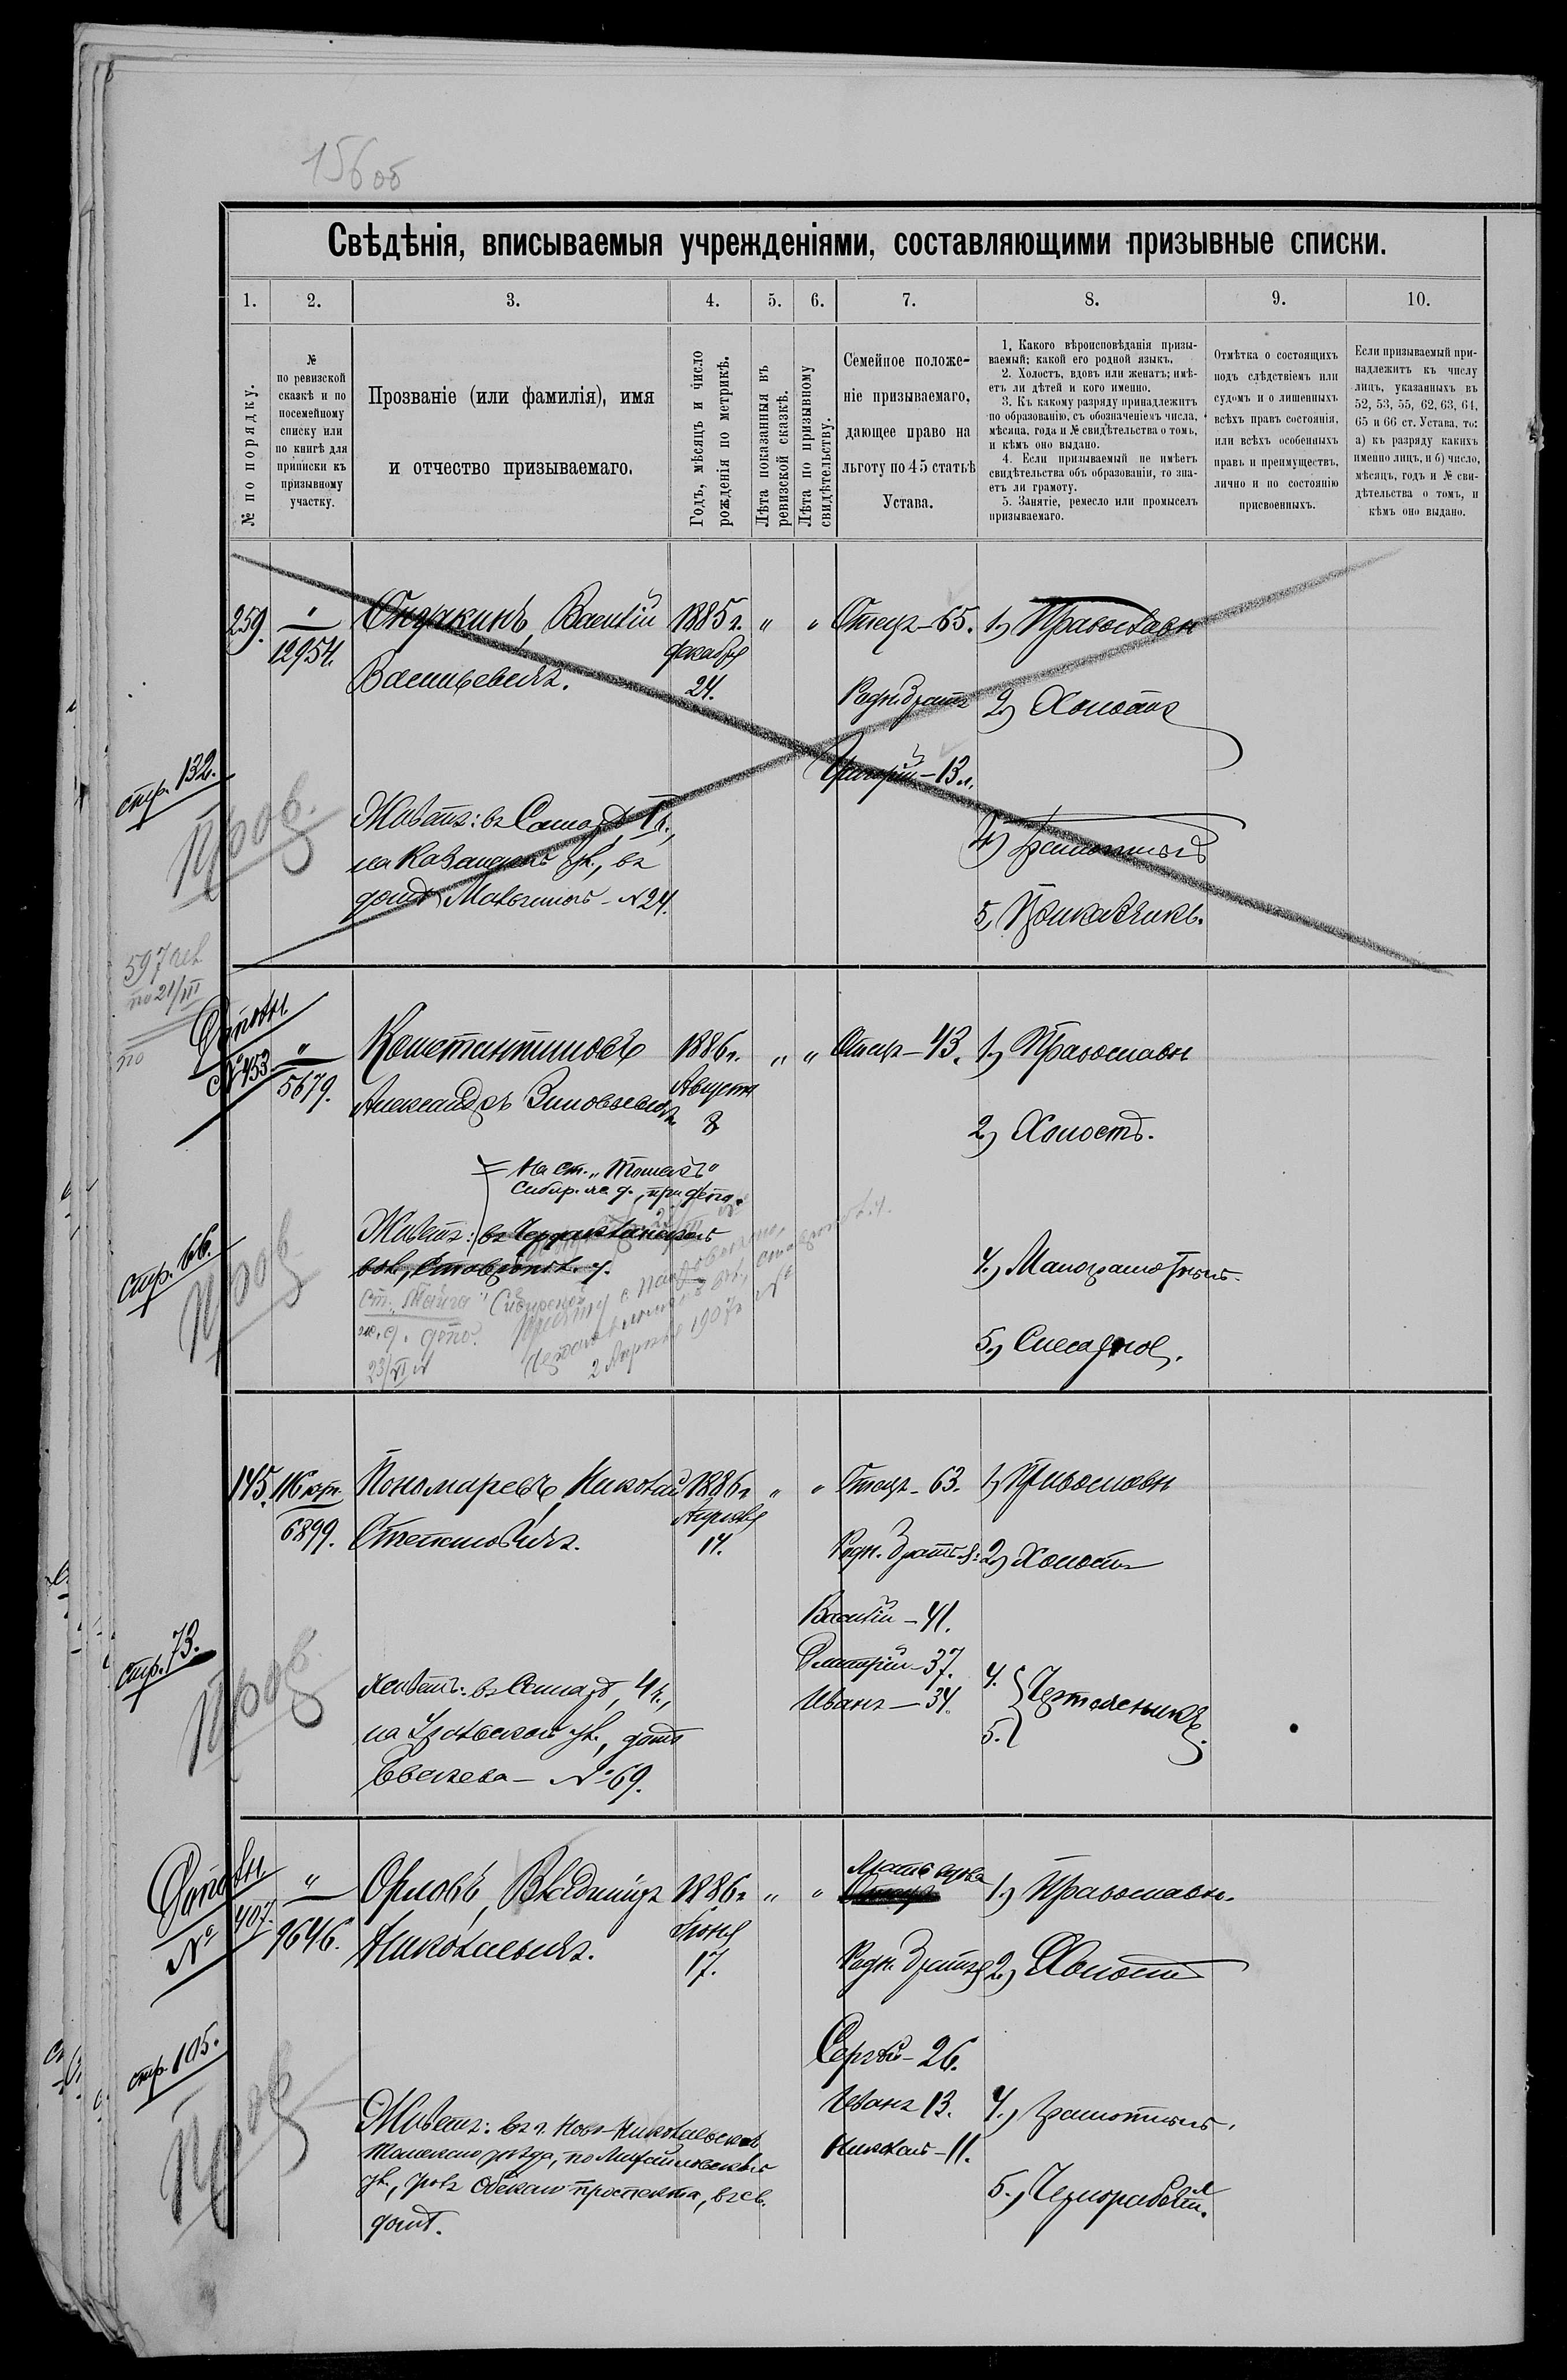 156 об
Свѣдѣнія, вписываемыя учрежденіями, составляющими призывные списки.
1. 2. 3. 4. 5. 6. 7. 8. 9. 10.
№ по порядку.
№
по ревизской
сказкѣ и по
посемейному
списку или
по книгѣ для
приписки къ
призывному
участку.
Прозваніе (или фамилія), имя
и отчество призываемаго.
Годъ, мѣсяцъ и число
рожденія по метрикѣ.
Лѣта показанныя въ
ревизской сказкѣ.
Лѣта по призывному
свидѣтельству.
Семейное положе-
ніе призываемаго,
дающее право на
льготу по 45 статьѣ
Устава.
1. Какого вѣроисповѣданія призы-
ваемый; какой его родной языкъ.
2. Холостъ, вдовъ или женатъ; имѣ-
етъ ли дѣтей и кого именно.
3. Къ какому разряду принадлежитъ
по образованію, съ обозначеніемъ числа,
мѣсяца, года и № свидѣтельства о томъ,
и кѣмъ оно выдано.
4. Если призываемый не имѣетъ
свидѣтельства объ образованіи, то зна-
етъ ли грамоту.
5. Занятіе, ремесло или промыселъ
призываемаго.
Отмѣтка о состоящихъ
подъ слѣдствіемъ или
судомъ и о лишенныхъ
всѣхъ правъ состоянія,
или всѣхъ особенныхъ
правъ и преимуществъ,
лично и по состоянію
присвоенныхъ.
Если призываемый при-
надлежитъ къ числу
лицъ, указанныхъ въ
52, 53, 55, 62, 63, 64,
65 и 66 ст. Устава, то:
а) къ разряду какихъ
именно лицъ, и б) число,
мѣсяцъ, годъ и № сви-
дѣтельства о томъ, и
кѣмъ оно выдано.
259. " 12954.
Василій
Васильевичъ.
1885 г.
декабря
24.
" "
Отецъ – 65.
Родн. братъ
Григорій – 13 л.
1) Православн
2) Холостъ
4) Грамотный
5) Приказчикъ.
стр. 132.
Пров.
Живетъ: въ Самарѣ, 1 ч.,
на Казанской ул., въ
домѣ № 24.
597
по 21/III
по
Дополн.
№ 453. " 5679.
Константиновъ
Александръ Зиновьевичъ
1886 г.
Августа
8
" "
Отецъ – 43.
1) Православн
2) Холостъ.
4) Малограмотный.
5) Слесарное.
На ст. "Томскъ"
Сибир. ж. д., при депо.
Живетъ: въ Чердаклинской
вол., Ставропол. у.
ст. "Тайга" Сибирской
ж. д. депо.
23/VI
2 Апрѣля 1907 г. №
стр. 66.
Пров.
145. 116 кр. 6899.
Пономаревъ, Николай
Степановичъ.
1886 г.
Апрѣля
14.
" "
Отецъ – 63.
Родн. братья:
Василій – 41.
Дмитрій – 37.
Иванъ – 34.
1) Православн
2) Холостъ
4.
5. Чертежникъ.
стр. 73.
Пров.
Живетъ: въ Самарѣ, 4 ч.,
на Уральской ул., домъ
№ 69.
Дополн.
№ 407. " 9646.
Орловъ, Владиміръ
Николаевичъ.
1886 г.
Іюня
17.
" "
Мать вдова
Отецъ
Родн. братья
Сергѣй – 26.
Иванъ 13.
Николай – 11.
1) Православн.
2) Холостъ
4) Грамотный.
5.) Чернорабочій.
стр. 105.
Пров
Живетъ: въ г. Ново-Николаевскѣ
Томскаго уѣзда, по
ул., уголъ Обскаго проспекта, въ св.
домѣ.